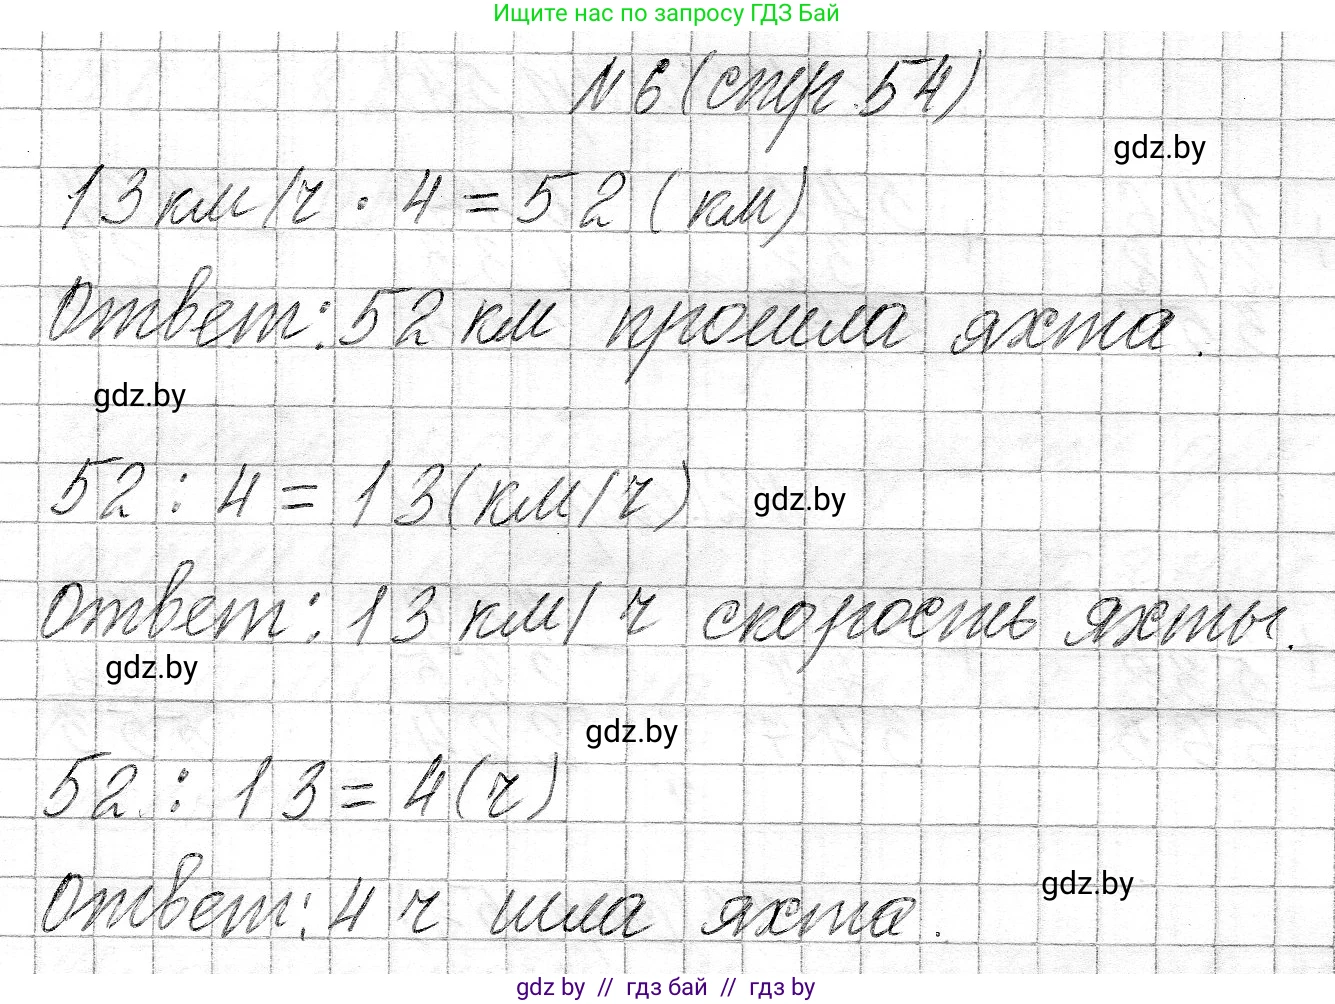 Ищите нас по запросу ГДЗ Бай
N 6 (стр. 54)
gdz.by
13 км/ч · 4 = 52 (км)
Ответ: 52 км прошла яхта.
gdz.by
52 : 4 = 13 (км/ч)
gdz.by
Ответ: 13 км/ч скорость яхты.
gdz.by
gdz.by
52 : 13 = 4 (ч)
gdz.by
Ответ: 4 ч шла яхта.
gdz by // гдз бай // гдз by